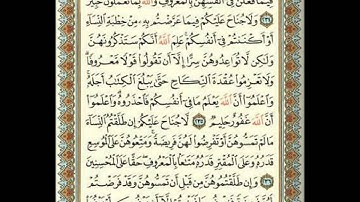 فِيمَا فَعَلْنَ فِي أَنفُسِهِنَّ بِالْمَعْرُوفِ وَاللَّهُ بِمَا تَعْمَلُونَ خَبِيرٌ
﴿٢٣٤﴾ وَلَا جُنَاحَ عَلَيْكُمْ فِيمَا عَرَّضْتُم بِهِ مِنْ خِطْبَةِ النِّسَاءِ
أَوْ أَكْنَنتُمْ فِي أَنفُسِكُمْ عَلِمَ اللَّهُ أَنَّكُمْ سَتَذْكُرُونَهُنَّ
وَلَٰكِن لَّا تُوَاعِدُوهُنَّ سِرًّا إِلَّا أَن تَقُولُوا قَوْلًا مَّعْرُوفًا
وَلَا تَعْزِمُوا عُقْدَةَ النِّكَاحِ حَتَّىٰ يَبْلُغَ الْكِتَابُ أَجَلَهُ
وَاعْلَمُوا أَنَّ اللَّهَ يَعْلَمُ مَا فِي أَنفُسِكُمْ فَاحْذَرُوهُ وَاعْلَمُوا
أَنَّ اللَّهَ غَفُورٌ حَلِيمٌ ﴿٢٣٥﴾ لَّا جُنَاحَ عَلَيْكُمْ إِن طَلَّقْتُمُ النِّسَاءَ
مَا لَمْ تَمَسُّوهُنَّ أَوْ تَفْرِضُوا لَهُنَّ فَرِيضَةً وَمَتِّعُوهُنَّ عَلَى الْمُوسِعِ
قَدَرُهُ وَعَلَى الْمُقْتِرِ قَدَرُهُ مَتَاعًا بِالْمَعْرُوفِ حَقًّا عَلَى الْمُحْسِنِينَ
﴿٢٣٦﴾ وَإِن طَلَّقْتُمُوهُنَّ مِن قَبْلِ أَن تَمَسُّوهُنَّ وَقَدْ فَرَضْتُمْ